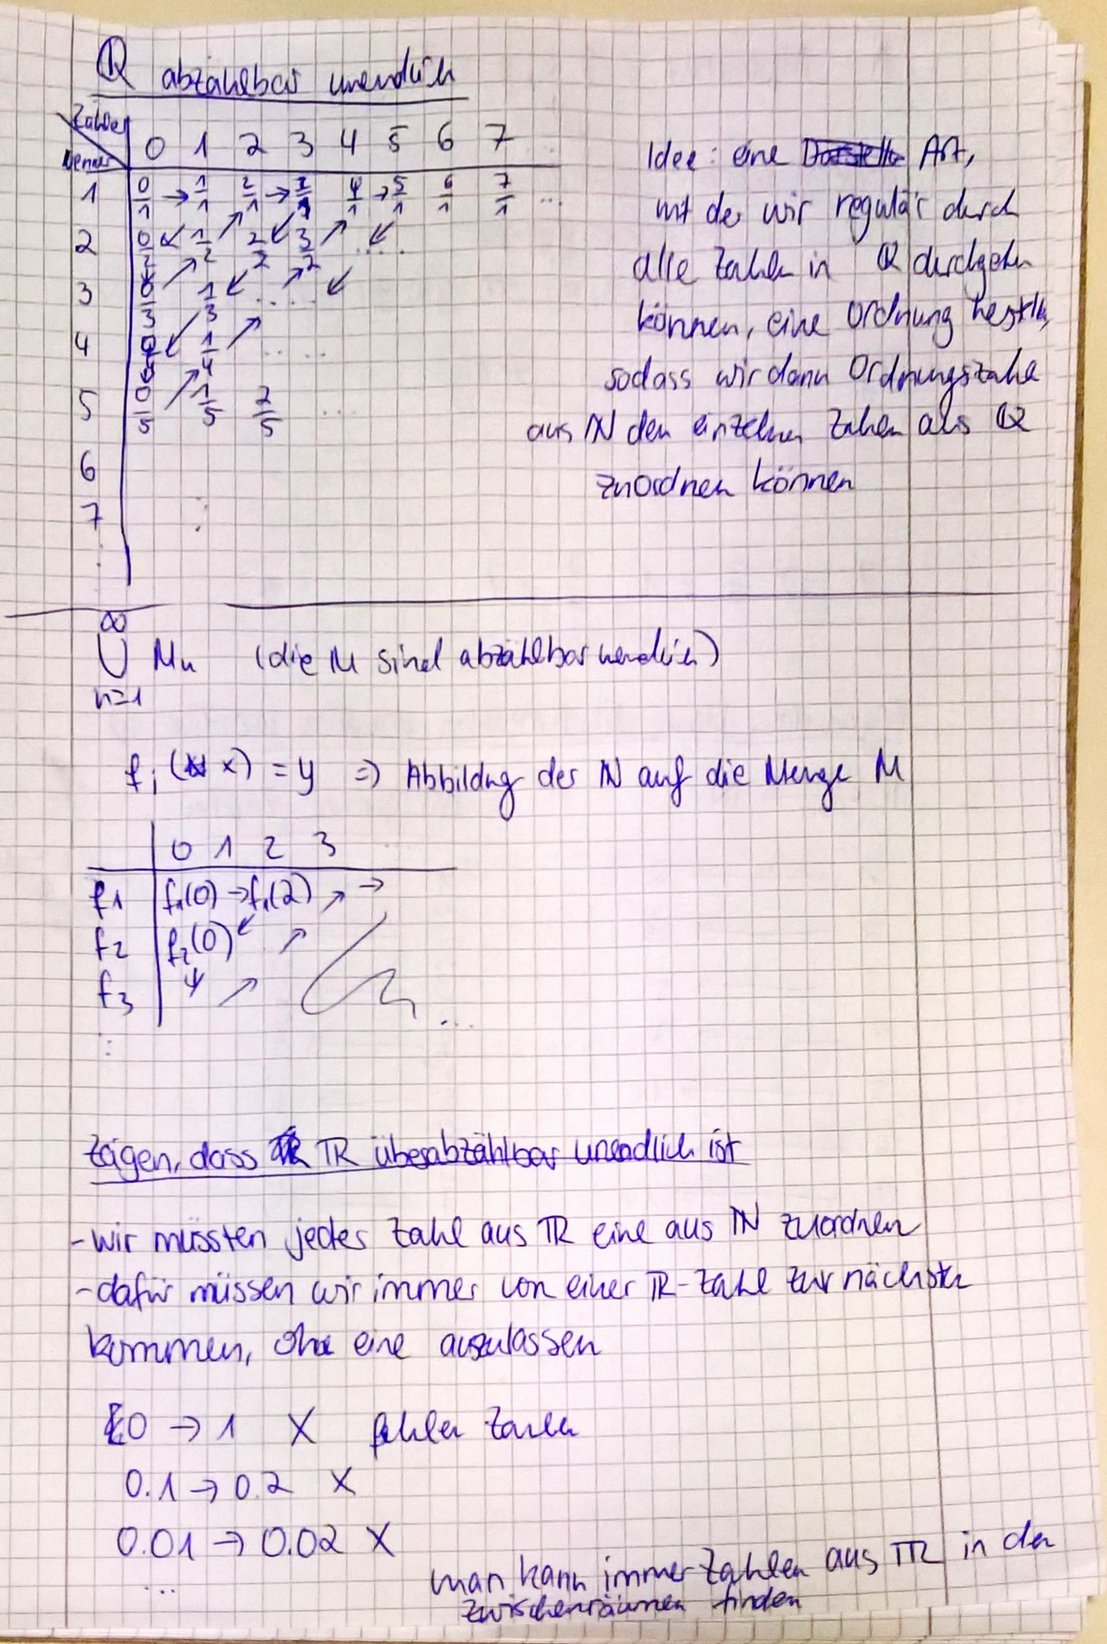 ℚ abzählbar unendlich
Zähler
Nenner
0 1 2 3 4 5 6 7 ...
1 0/1 → 1/1 2/1 → 3/1 4/1 → 5/1 6/1 7/1 ...
2 0/2 ↙ 1/2 ↗ 2/2 ↙ 3/2 ↗ .... ↙
3 0/3 ↗ 1/3 ↙ .... ↗ ↙
4 0/4 ↙ 1/4 ↗ ....
5 0/5 ↗ 1/5 2/5 ...
6
7
Idee: eine Art,
mit der wir regulär durch
alle Zahlen in ℚ durchgehen
können, eine Ordnung herstelln,
sodass wir dann Ordnungszahlen
aus ℕ den einzelnen Zahlen aus ℚ
zuordnen können
∞
⋃ Mn (die M sind abzählbar unendlich)
n=1
fi (x) = y ⇒ Abbildung der ℕ auf die Menge M
0 1 2 3
f1 f1(0) → f1(2) ↗ →
f2 f2(0) ↙ ↗
f3 ↓ ↗ ...
Zeigen, dass ℝ überabzählbar unendlich ist
- wir müssten jeder Zahl aus ℝ eine aus ℕ zuordnen
- dafür müssen wir immer von einer ℝ-Zahl zur nächsten
kommen, ohne eine auszulassen
0 → 1 X fehlen Zahlen
0.1 → 0.2 X
0.01 → 0.02 X
...
man kann immer Zahlen aus ℝ in den
Zwischenräumen finden